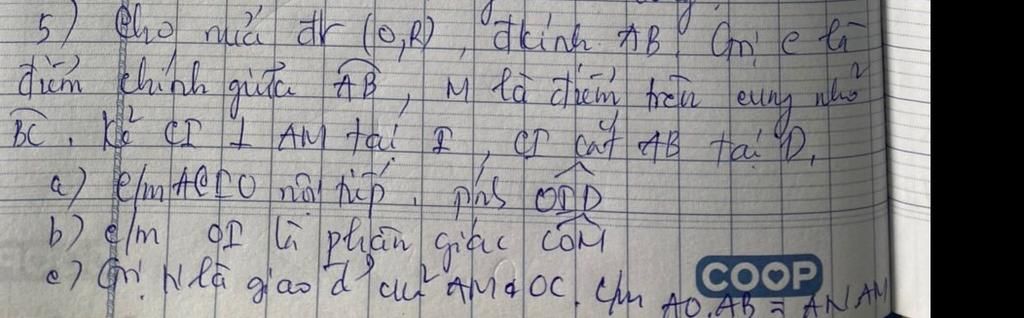 5) Cho nửa đr (O,R), đkính AB. Gọi C là
điểm chính giữa AB, M là điểm trên cung nhỏ
BC. Kẻ CI ⊥ AM tại I, CI cắt AB tại D.
a) c/m ACIO nội tiếp. OID
b) c/m OI là phân giác COM
c) Gọi N là giao đ' của AM & OC. C/m AO.AB = AN.AM
COOP